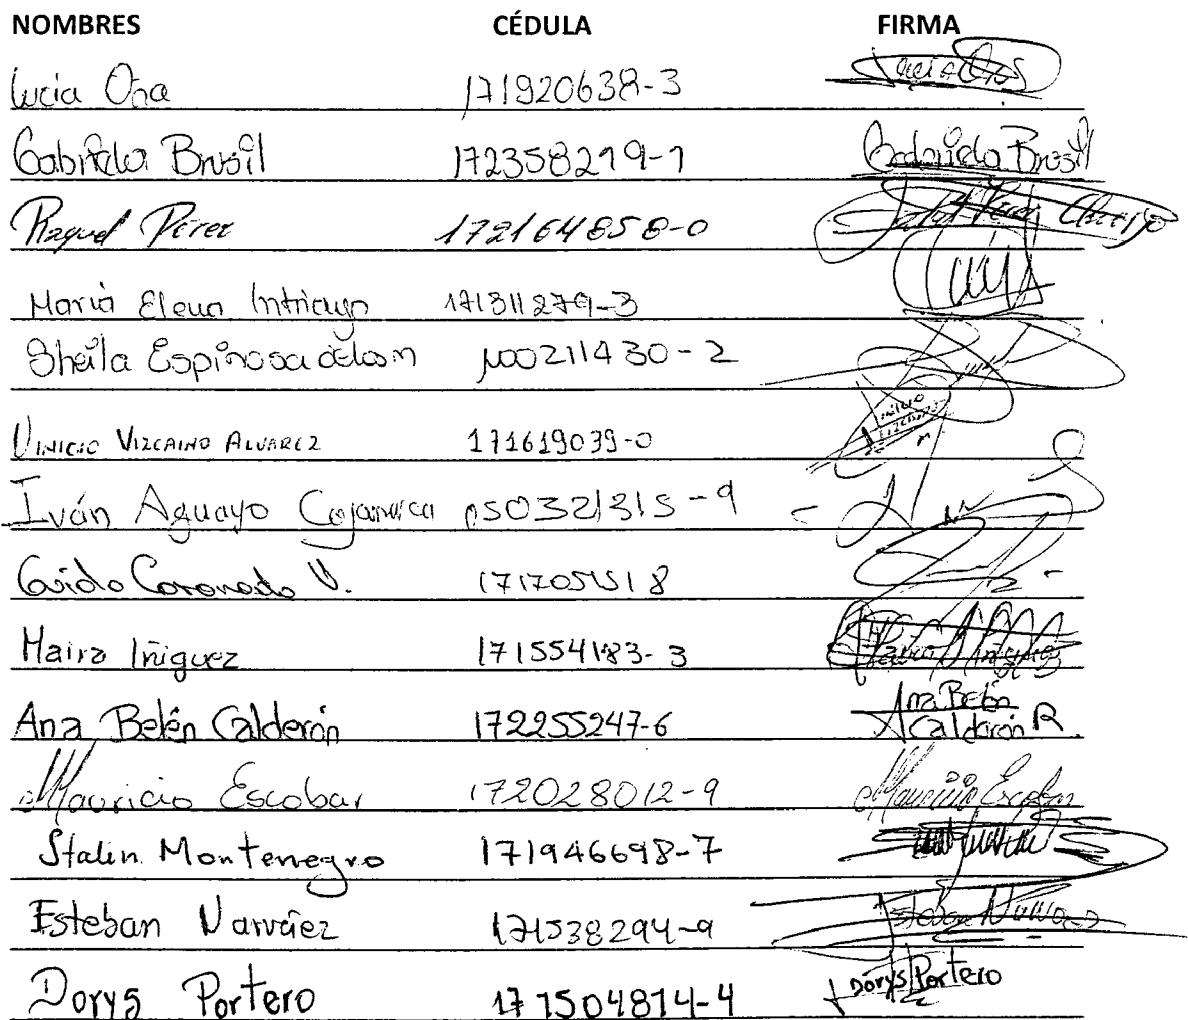 NOMBRES CÉDULA FIRMA
Lucia Oña 171920638-3
Gabriela Brusil 172358219-1 Gabriela Brusil
Raquel Pérez 172164858-0
Maria Elena Intriago 171311279-3
Sheila Espinosa 100211430-2
VINICIO VIZCAINO ALVAREZ 171619039-0
Iván Aguayo 050321315-9
Guido Coronado V.
Maira Iñiguez 171554183-3
Ana Belén Calderón 172255247-6 Ana Belén
Calderón R.
Mauricio Escobar 172028012-9 Mauricio Escobar
Stalin Montenegro 171946698-7
Esteban Narváez 171538294-9 Esteban
Dorys Portero 171504814-4 Dorys Portero